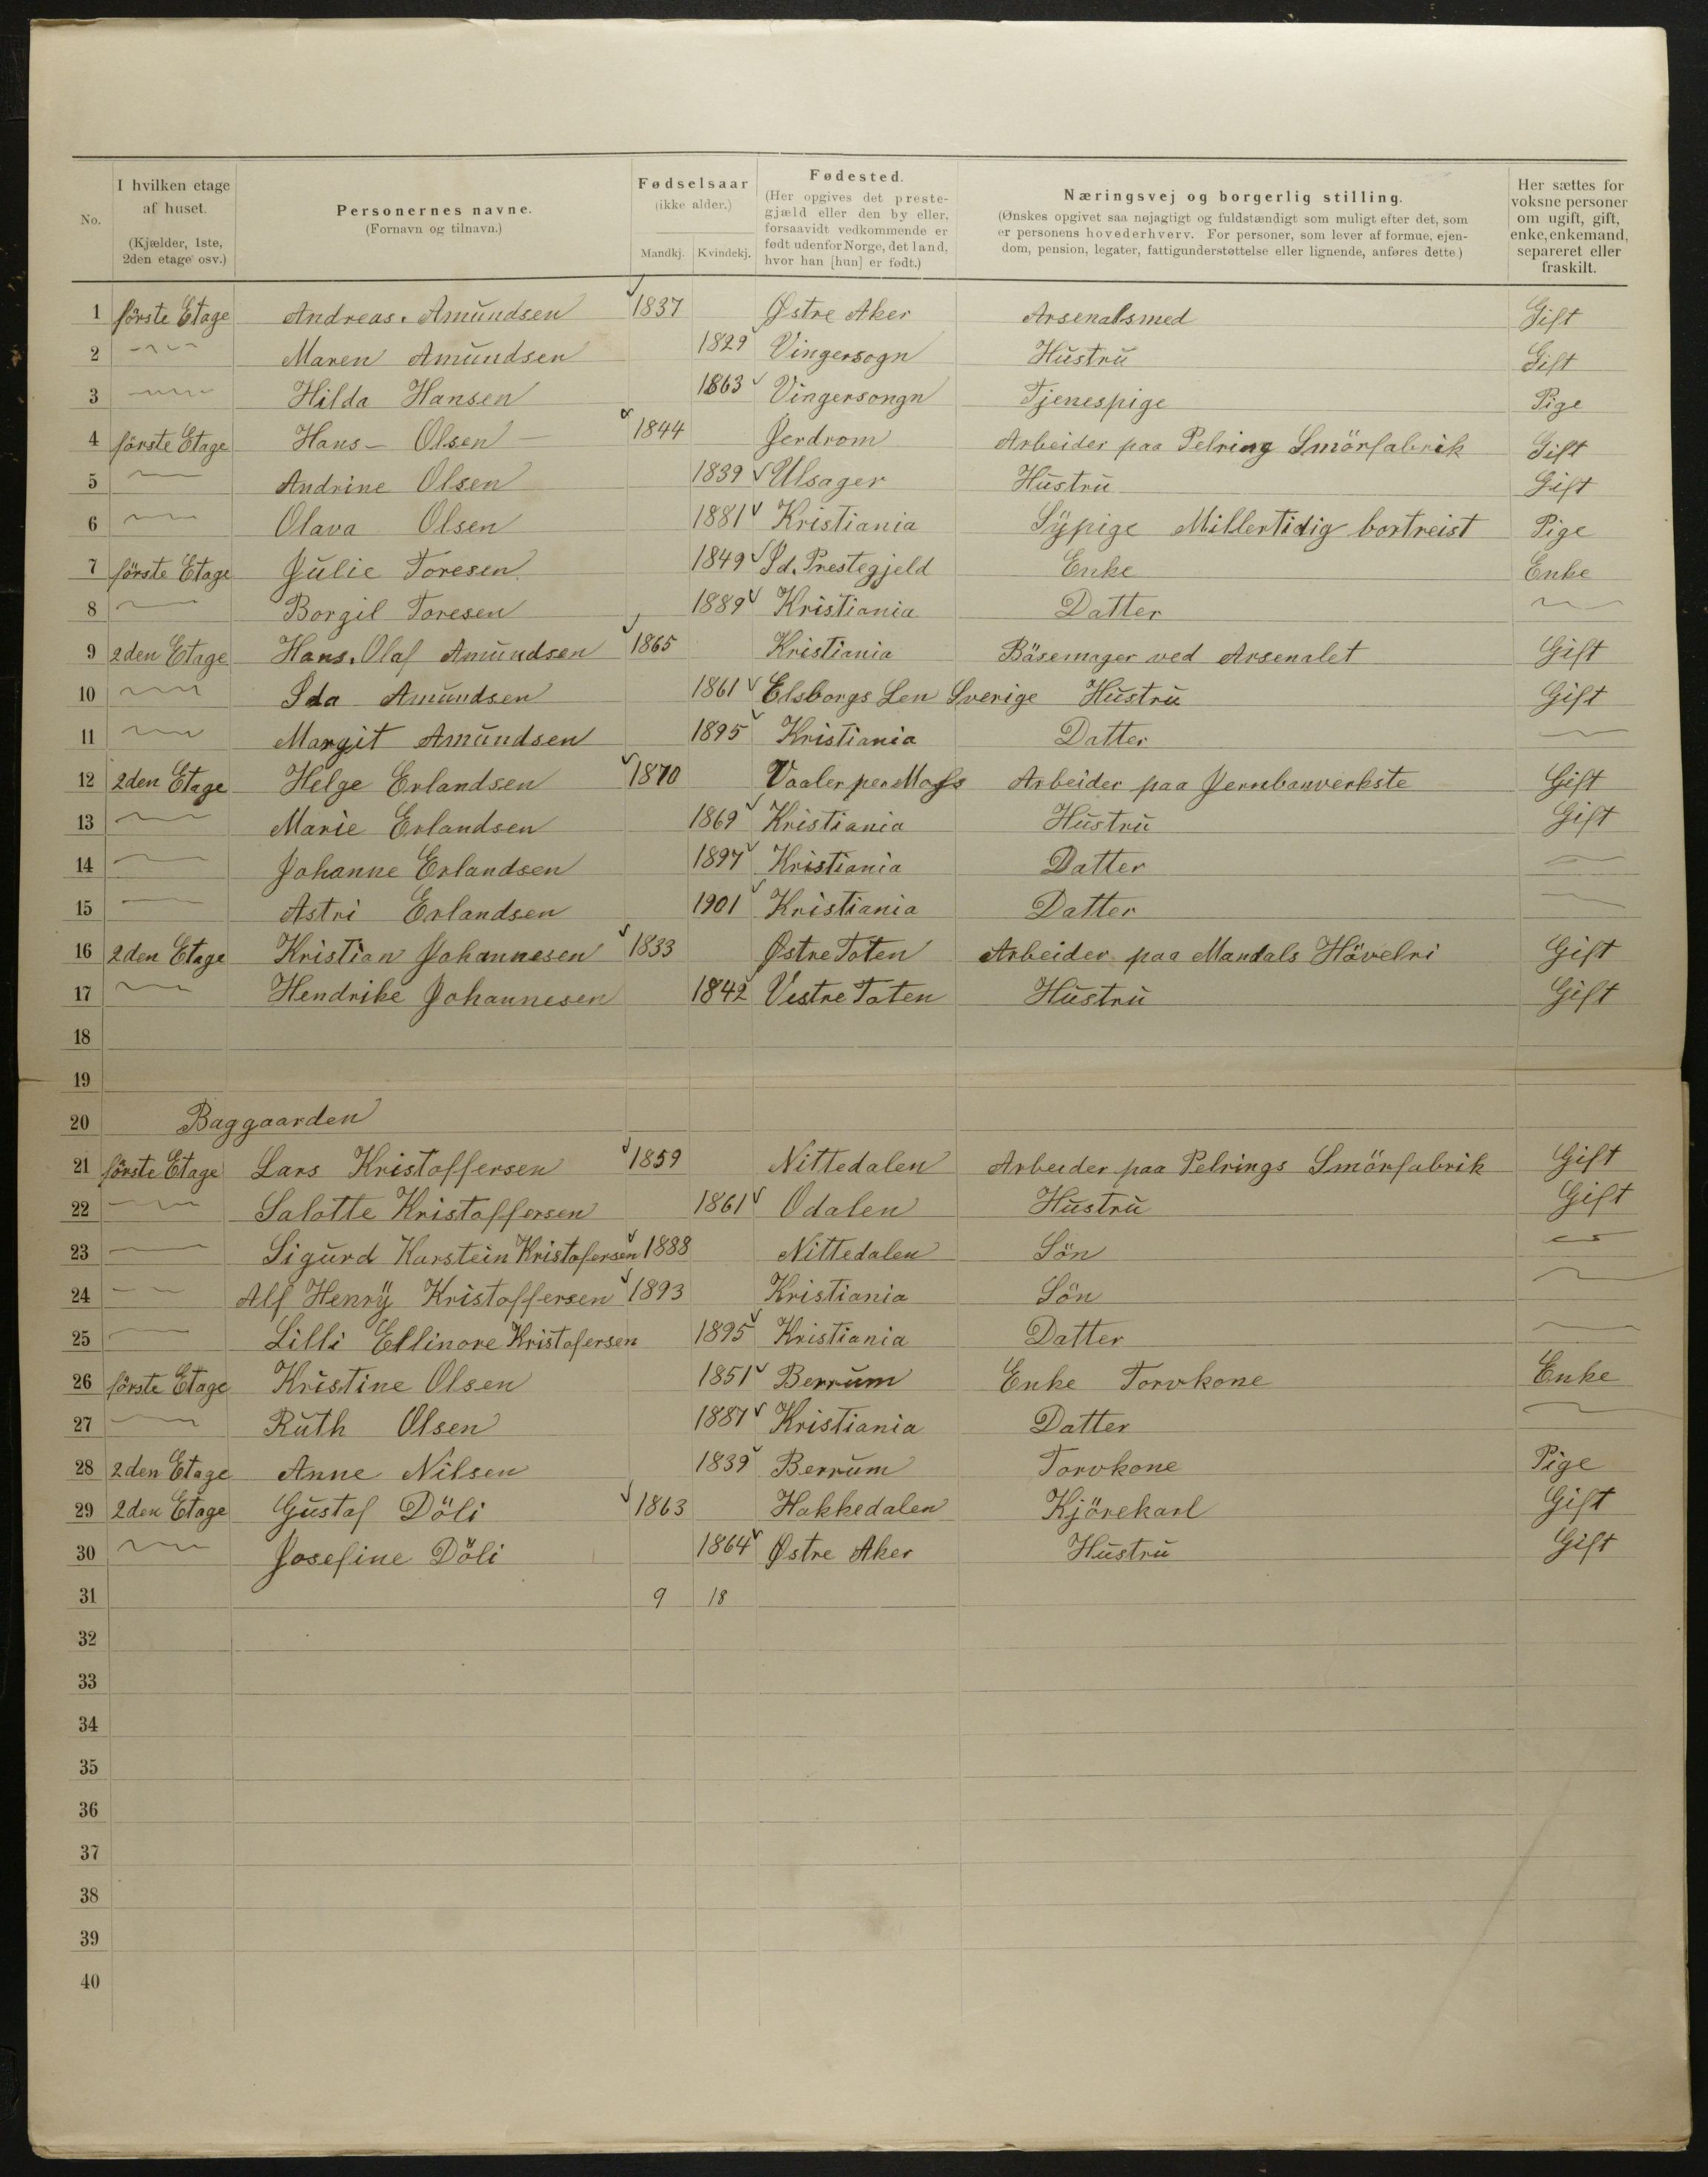 No. | I hvilken etage af huset. (Kjælder, 1ste, 2den etage osv.) | Personernes navne. (Fornavn og tilnavn.) | Fødselsaar (ikke alder.) Mandkj. Kvindekj. | Fødested. (Her opgives det prestegjæld eller den by eller, forsaavidt vedkommende er født udenfor Norge, det land, hvor han [hun] er født.) | Næringsvej og borgerlig stilling. (Ønskes opgivet saa nøjagtigt og fuldstændigt som muligt efter det, som er personens hovederhverv. For personer, som lever af formue, ejendom, pension, legater, fattigunderstøttelse eller lignende, anføres dette.) | Her sættes for voksne personer om ugift, gift, enke, enkemand, separeret eller fraskilt.
1 förste Etage Andreas. Amundsen 1837 Østre Aker Arsenalsmed Gift
2 Maren Amundsen 1829 Vingersogn Hustru Gift
3 Hilda Hansen 1863 Vingersongn Tjenespige Pige
4 förste Etage Hans Olsen 1844 Jerdrom Arbeider paa Pelring Smörfabrik Gift
5 Andrine Olsen 1839 Ulsager Hustru Gift
6 Olava Olsen 1881 Kristiania Sÿpige Millertidig bortreist Pige
7 förste Etage Julie Toresen 1849 Prestegjeld Enke Enke
8 Borgil Toresen 1889 Kristiania Datter
9 2den Etage Hans. Olaf Amundsen 1865 Kristiania Bäsemager ved Arsenalet Gift
10 Ida Amundsen 1861 Elsborgs Len Sverige Hustru Gift
11 Margit Amundsen 1895 Kristiania Datter
12 2den Etage Helge Erlandsen 1870 Vaaler per Moss Arbeider paa Jernbanverkste Gift
13 Marie Erlandsen 1869 Kristiania Hustru Gift
14 Johanne Erlandsen 1897 Kristiania Datter
15 Astri Erlandsen 1901 Kristiania Datter
16 2den Etage Kristian Johannesen 1833 Østre Toten Arbeider paa Mandals Hövelri Gift
17 Hendrike Johannesen 1842 Vestre Toten Hustru Gift
18
19
20 Baggaarden
21 förste Etage Lars Kristoffersen 1859 Nittedalen Arbeider paa Pelrings Smörfabrik Gift
22 Salotte Kristoffersen 1861 Odalen Hustru Gift
23 Sigurd Karstein Kristofersen 1888 Nittedalen Sön
24 Alf Henrÿ Kristoffersen 1893 Kristiania Sön
25 Lilli Ellinore Kristofersen 1895 Kristiania Datter
26 förste Etage Kristine Olsen 1851 Berrum Enke Torvkone Enke
27 Ruth Olsen 1887 Kristiania Datter
28 2den Etage Anne Nilsen 1839 Berrum Torvkone Pige
29 2den Etage Gustaf Döli 1863 Hakkedalen Kjörekarl Gift
30 Josefine Döli 1864 Østre Aker Hustru Gift
31 9 18
32
33
34
35
36
37
38
39
40